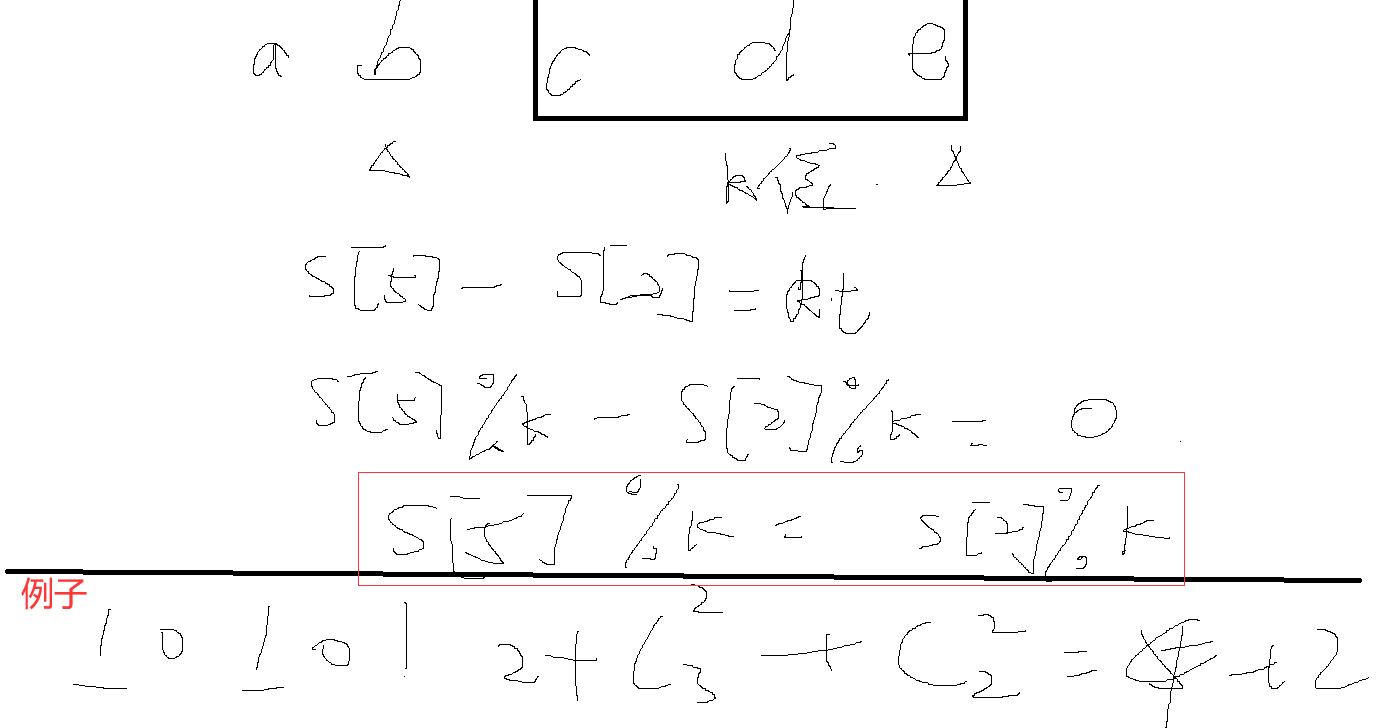 a b c d e
k倍
S[5] - S[2] = kt
S[5]%k - S[2]%k = 0
S[5]%k = S[2]%k
例子
1 0 1 0 1 2+C₃²+C₂²= +2